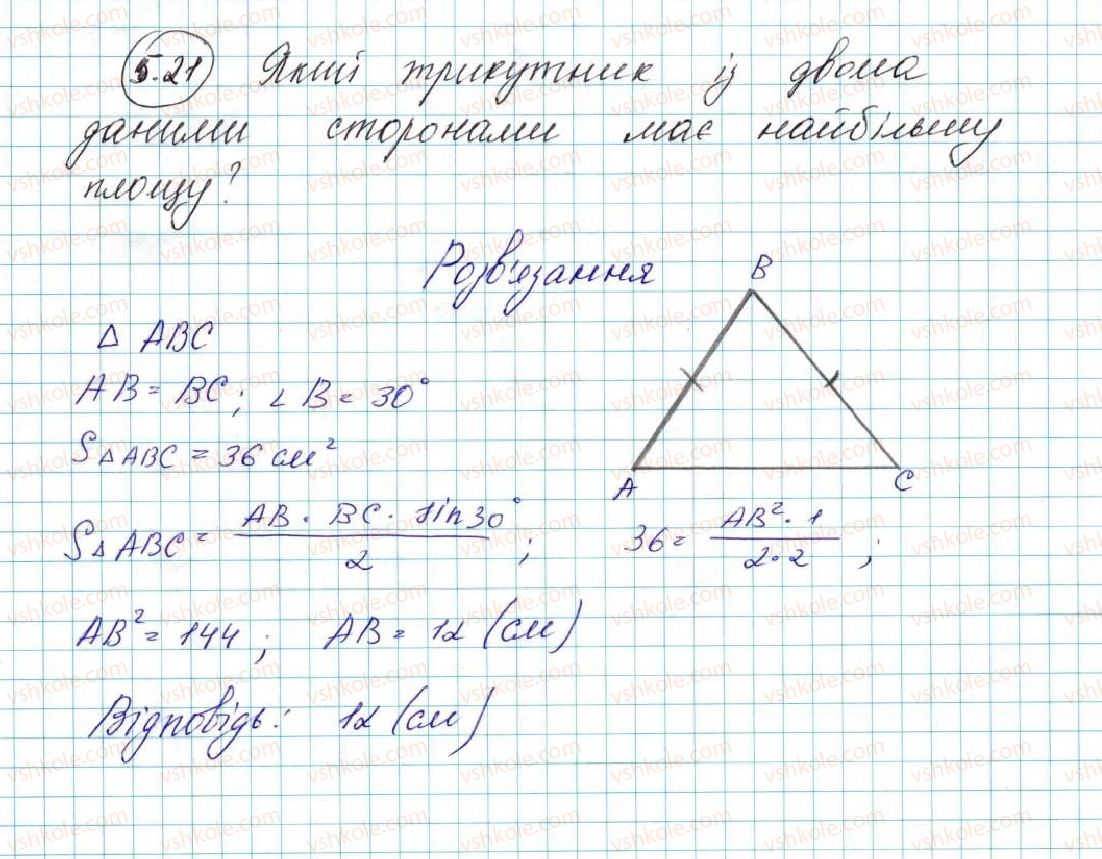 5.21 Який трикутник із двома
даними сторонами має найбільшу
площу?
Розв'язання
B
△ ABC
AB = BC; ∠B = 30°
S△ABC = 36 см²
A C
S△ABC = AB · BC · sin30° / 2 ; 36 = AB² · 1 / 2·2 ;
AB² = 144 ; AB = 12 (см)
Відповідь: 12 (см)